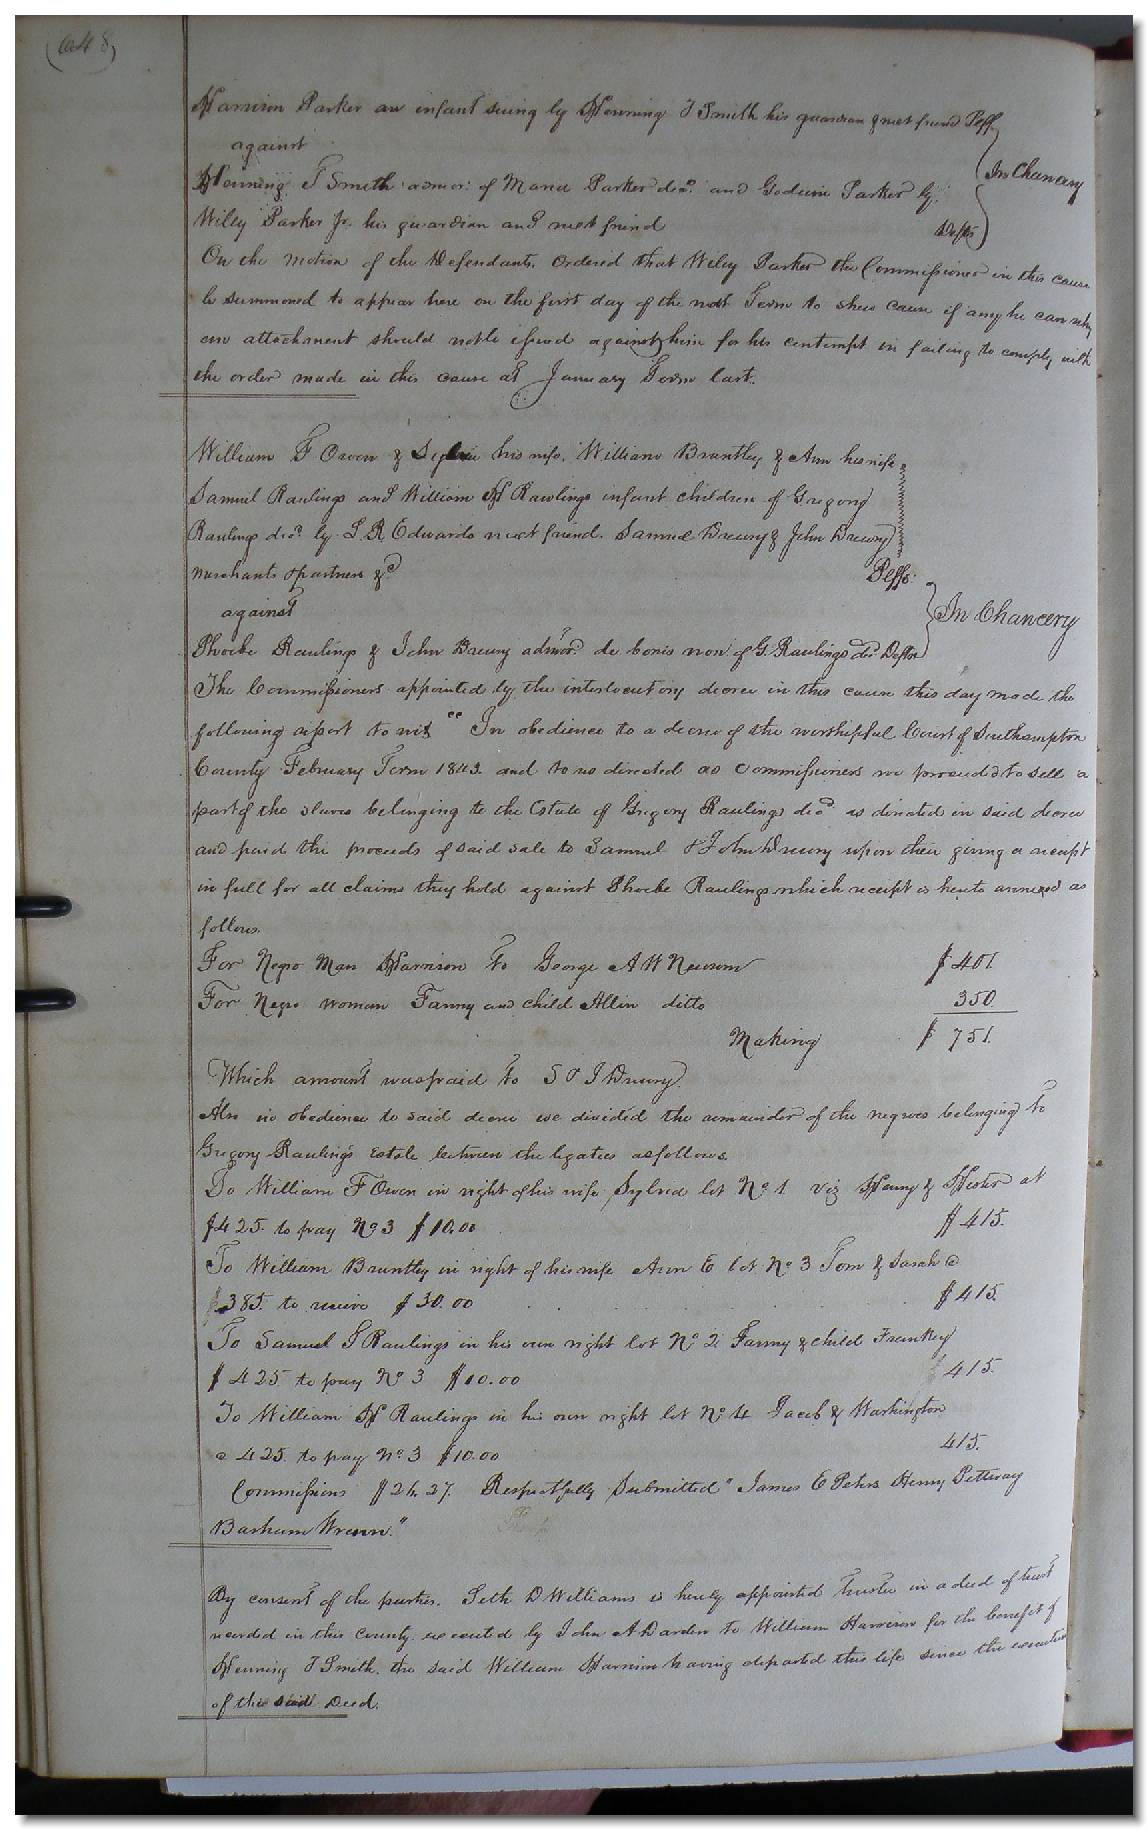 (648)
Harrison Parker an infant suing by Henning T Smith his guardian & next friend Plff
against
In Chancery
Henning T Smith admor: of Maria Parker decd. and Godwin Parker by
Wiley Parker Jr. his guardian and next friend Defts
On the motion of the Defendants. Ordered that Wiley Parker the Commissioner in this cause
be summoned to appear here on the first day of the next Term to shew cause if any he can why
an attachment should not be issued against him for his contempt in failing to comply with
the order made in this cause at January Term last.
William F Owen & Sylvia his wife, William Brantley & Ann his wife
Samuel Raulings and William H Rawlings infant children of Gregory
Raulings decd. by L R Edwards next friend. Samuel Drewry & John Drewry
merchants & partners &c Plffs:
against
In Chancery
Phoebe Raulings & John Drewry admor. de bonis non of G. Raulings decd. Defts
The Commissioners appointed by the interlocutory decree in this cause this day made the
following report to wit "In obedience to a decree of the worshipful Court of Southampton
County February Term 1843. and to us directed as Commissioners we proceeded to sell a
part of the slaves belonging to the Estate of Gregory Raulings decd as directed in said decree
and paid the proceeds of said sale to Samuel & John Drewry upon their giving a receipt
in full for all claims they hold against Phoebe Raulings which receipt is hereto annexed as
follows.
For Negro Man Harrison To George A W Newsom $401.
For Negro woman Fanny and child Allin ditto 350
Making $751.
Which amount was paid to S & J Drewry
Also in obedience to said decree we divided the remainder of the negroes belonging to
Gregory Raulings Estate between the legatees as follows
To William F Owen in right of his wife Sylvia lot No. 1 viz Henry & Hester at
$425. to pay No 3 $10.00 $415.
To William Brantley in right of his wife Ann E lot No. 3 Tom & Sarah @
$385. to receive $30.00 $415.
To Samuel S Raulings in his own right lot No. 2 Fanny & child Frankey
$425 to pay No. 3 $10.00 415.
To William H Raulings in his own right lot No. 4 Jacob & Washington
@ 425. to pay No. 3 $10.00 415.
Commissions $24.27. Respectfully Submitted" James E Peters Henry Petteway
Barham Wrenn."
By consent of the parties. Seth D Williams is hereby appointed Trustee in a deed of trust
recorded in this County executed by John A Darden to William Harrison for the benefit of
Henning T Smith. the said William Harrison having departed this life since the execution
of the said Deed.